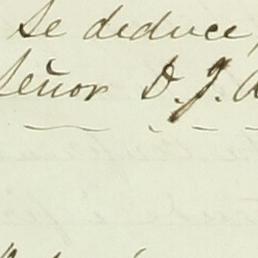 se deduce,
señor D. J. A